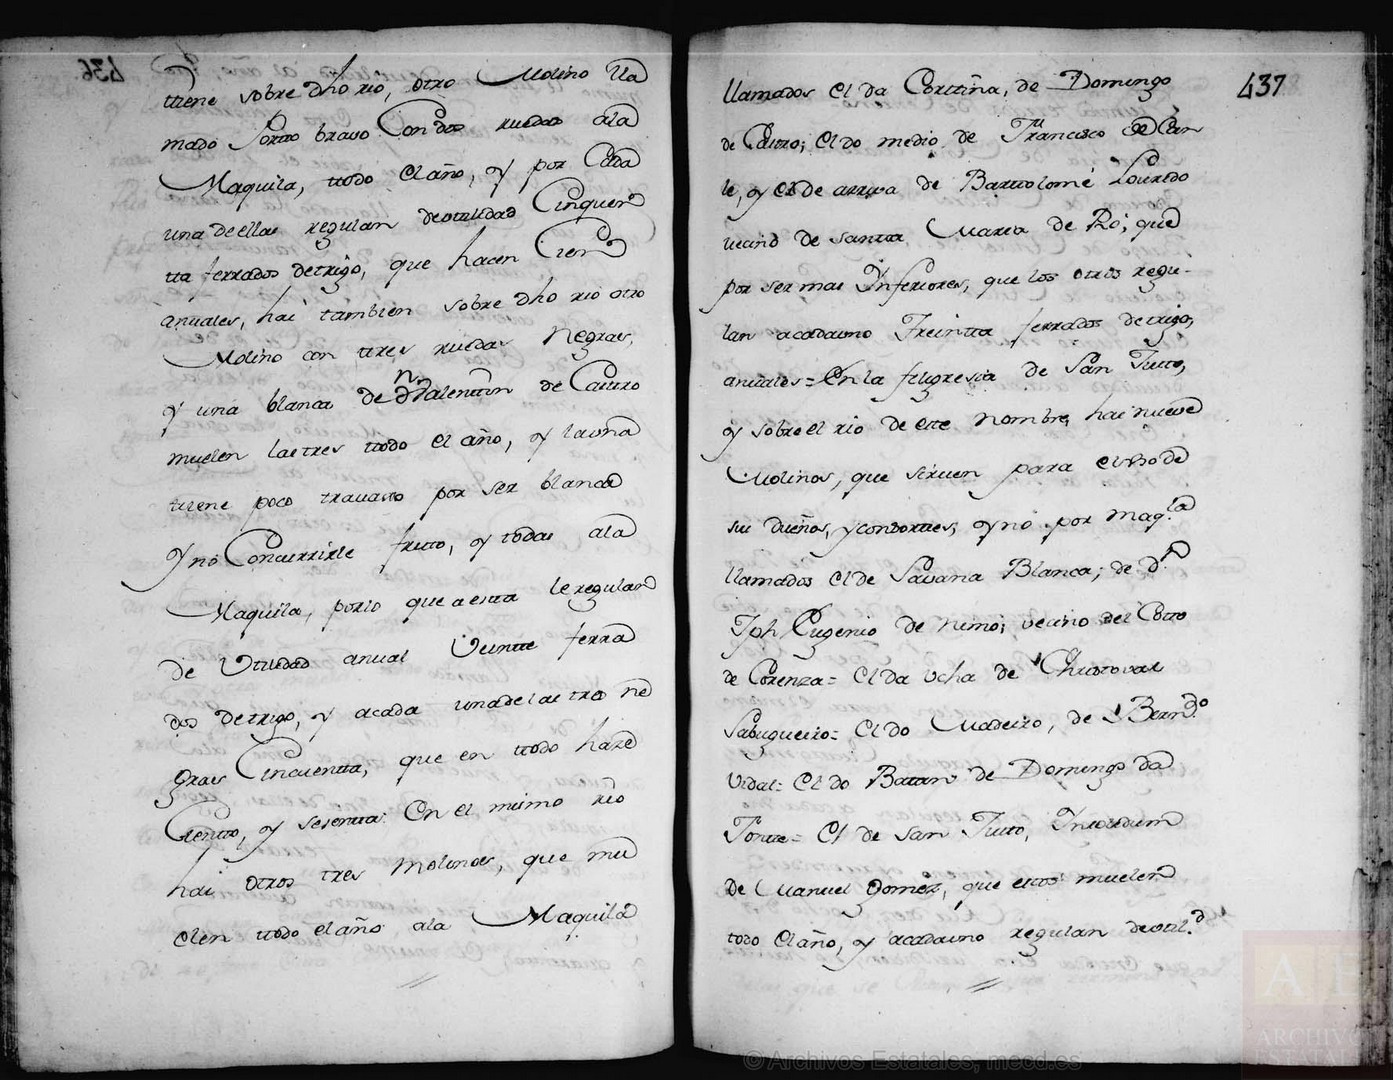 tiene sobre dho rio, otro Molino lla
mado Porto bravo Con dos ruedas ala
Maquila, todo el año, y por Cada
una de ellas regulan de utilidad Cinquen
ta ferrados de trigo, que hacen Cien
anuales, hai tambien sobre dho rio otro
Molino con tres ruedas negras,
y una blanca de Dn Valentin de Castro
muelen las tres todo el año, y la una
tiene poco travajo por ser blanca
y no Concurrirle fruto, y todas ala
Maquila, por lo que a esta le regulan
de Utilidad anual Veinte ferra
dos de trigo, y acada una de las tres ne
gras Cinquenta, que en todo hazen
Ciento, y sesenta. En el mismo rio
hai otros tres Molinos, que mu
elen todo el año ala Maquila
437
llamados el da Cortiña, de Domingo
de Castro; el do medio de Francisco
le, y el de arriva de Bartolomé Louredo
vecino de Santa Maria de Rô; que
por ser mas Inferiores, que los otros regu-
lan acadauno Treinta ferrados de trigo,
anuales= En la feligresia de San Justo,
y sobre el rio de este nombre, hai nueve
Molinos, que sirven para el uso de
sus dueños, y consortes, y no por maqla
llamados el de Savana Blanca; de Dn
Jph Eugenio de nimo; vecino del Coto
de Corenza= El da Ucha de Christoval
Sabugueiro= El do Madeiro, de Berndo
Vidal= El do Batan de Domingo da
Fonte= El de San Justo, Insolidum
de Manuel Gomez, que estos muelen
todo el año, y acadauno regulan de utild
© Archivos Estatales, mecd.es
AE
ARCHIVOS
ESTATALES